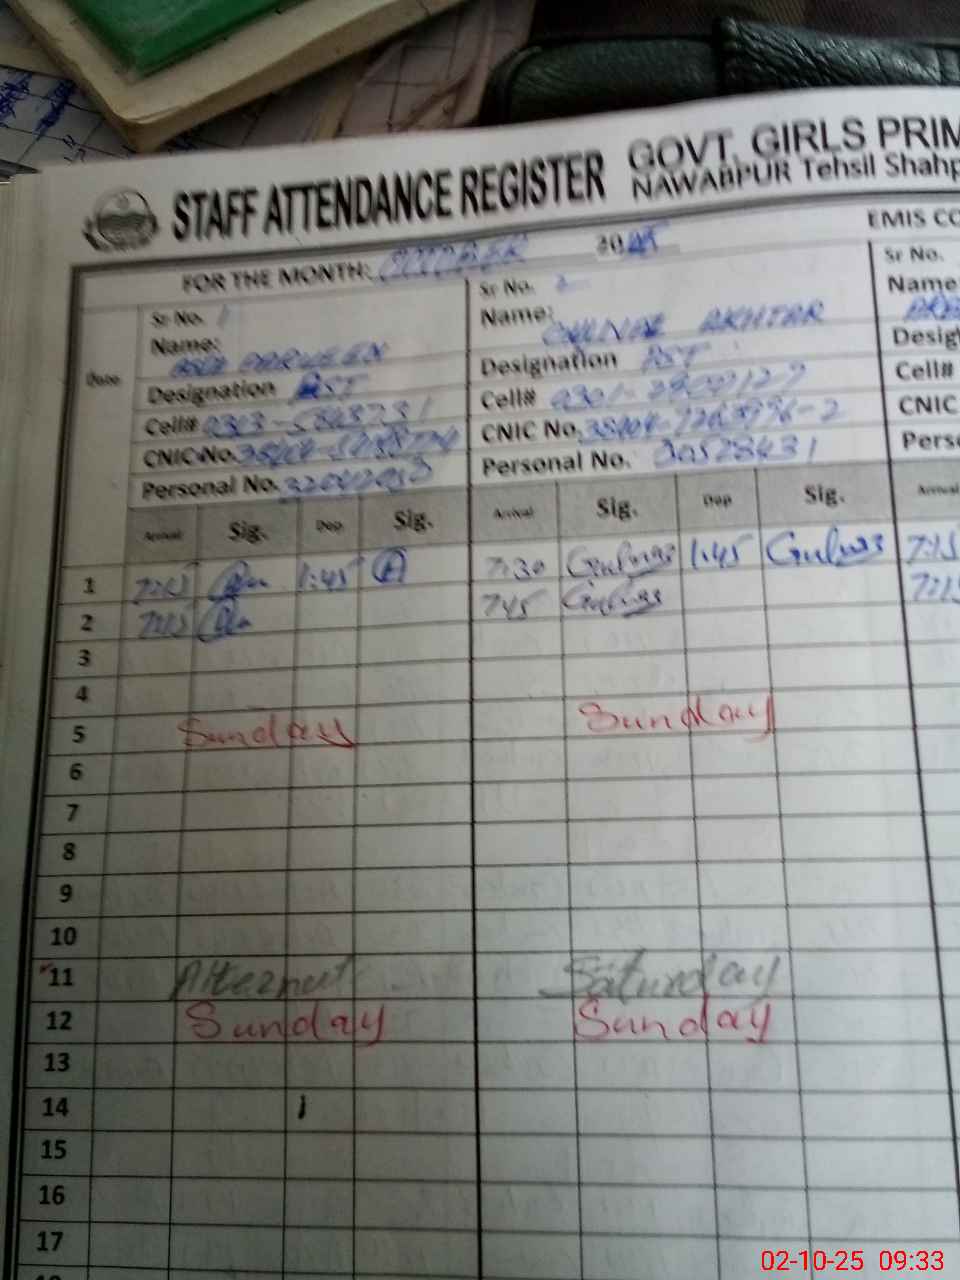 STAFF ATTENDANCE REGISTER GOVT. GIRLS PRIM
NAWABPUR Tehsil Shahp
EMIS CO
FOR THE MONTH: OCTOBER 2025
Date
Sr No. 1
Name:
PARVEEN
Designation PST
Cell# 0303-
CNIC No.
Personal No.
Sr No. 2
Name:
AKHTAR
Designation PST
Cell# 0301-
CNIC No.
Personal No. 30528431
Sr No.
Name:
Desig
Cell#
CNIC
Perso
Arrival Sig. Dep Sig. Arrival Sig. Dep Sig. Arrival
1 7:15 1:45 7:30 Gulnaz 1:45 Gulnaz 7:15
2 7:15 7:45 Gulnaz 7:15
3
4
5 Sunday Sunday
6
7
8
9
10
11 Alternut Saturday
12 Sunday Sunday
13
14
15
16
17
02-10-25 09:33